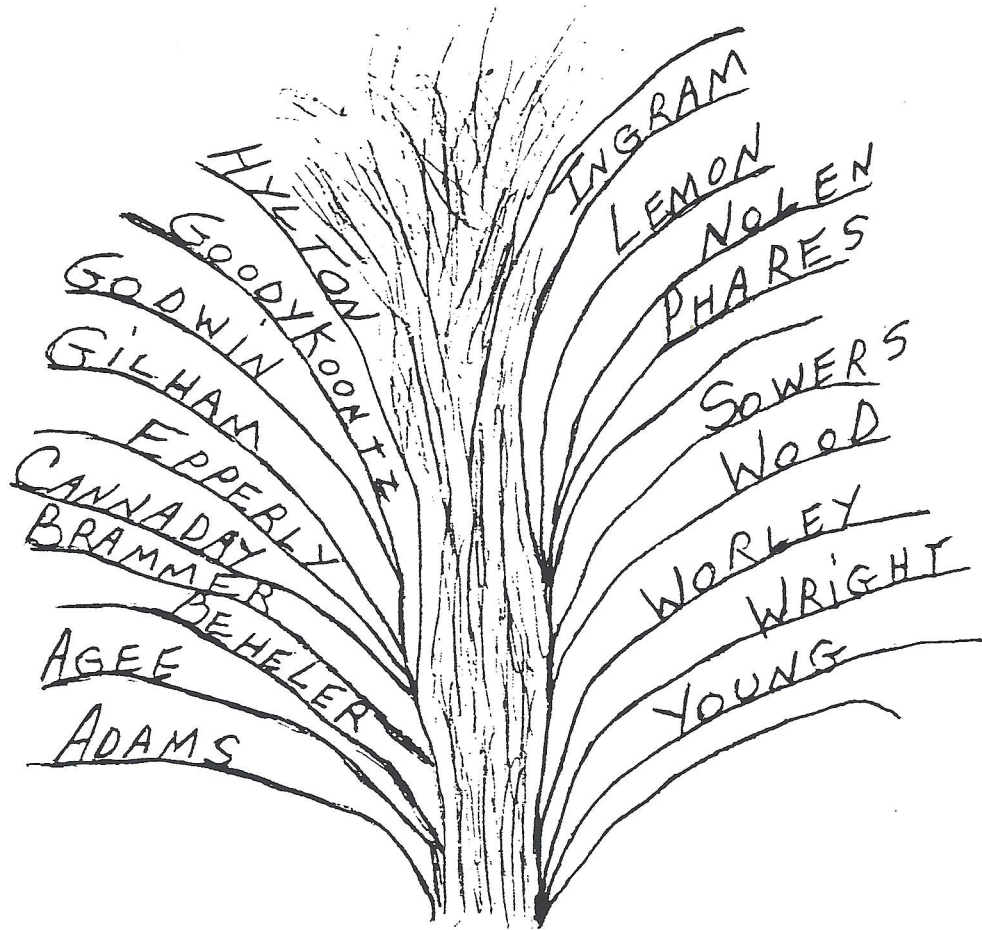 HYLTON
GOODYKOONTZ
GODWIN
GILHAM
EPPERLY
CANNADAY
BRAMMER
BEHELER
AGEE
ADAMS
INGRAM
LEMON
NOLEN
PHARES
SOWERS
WOOD
WORLEY
WRIGHT
YOUNG